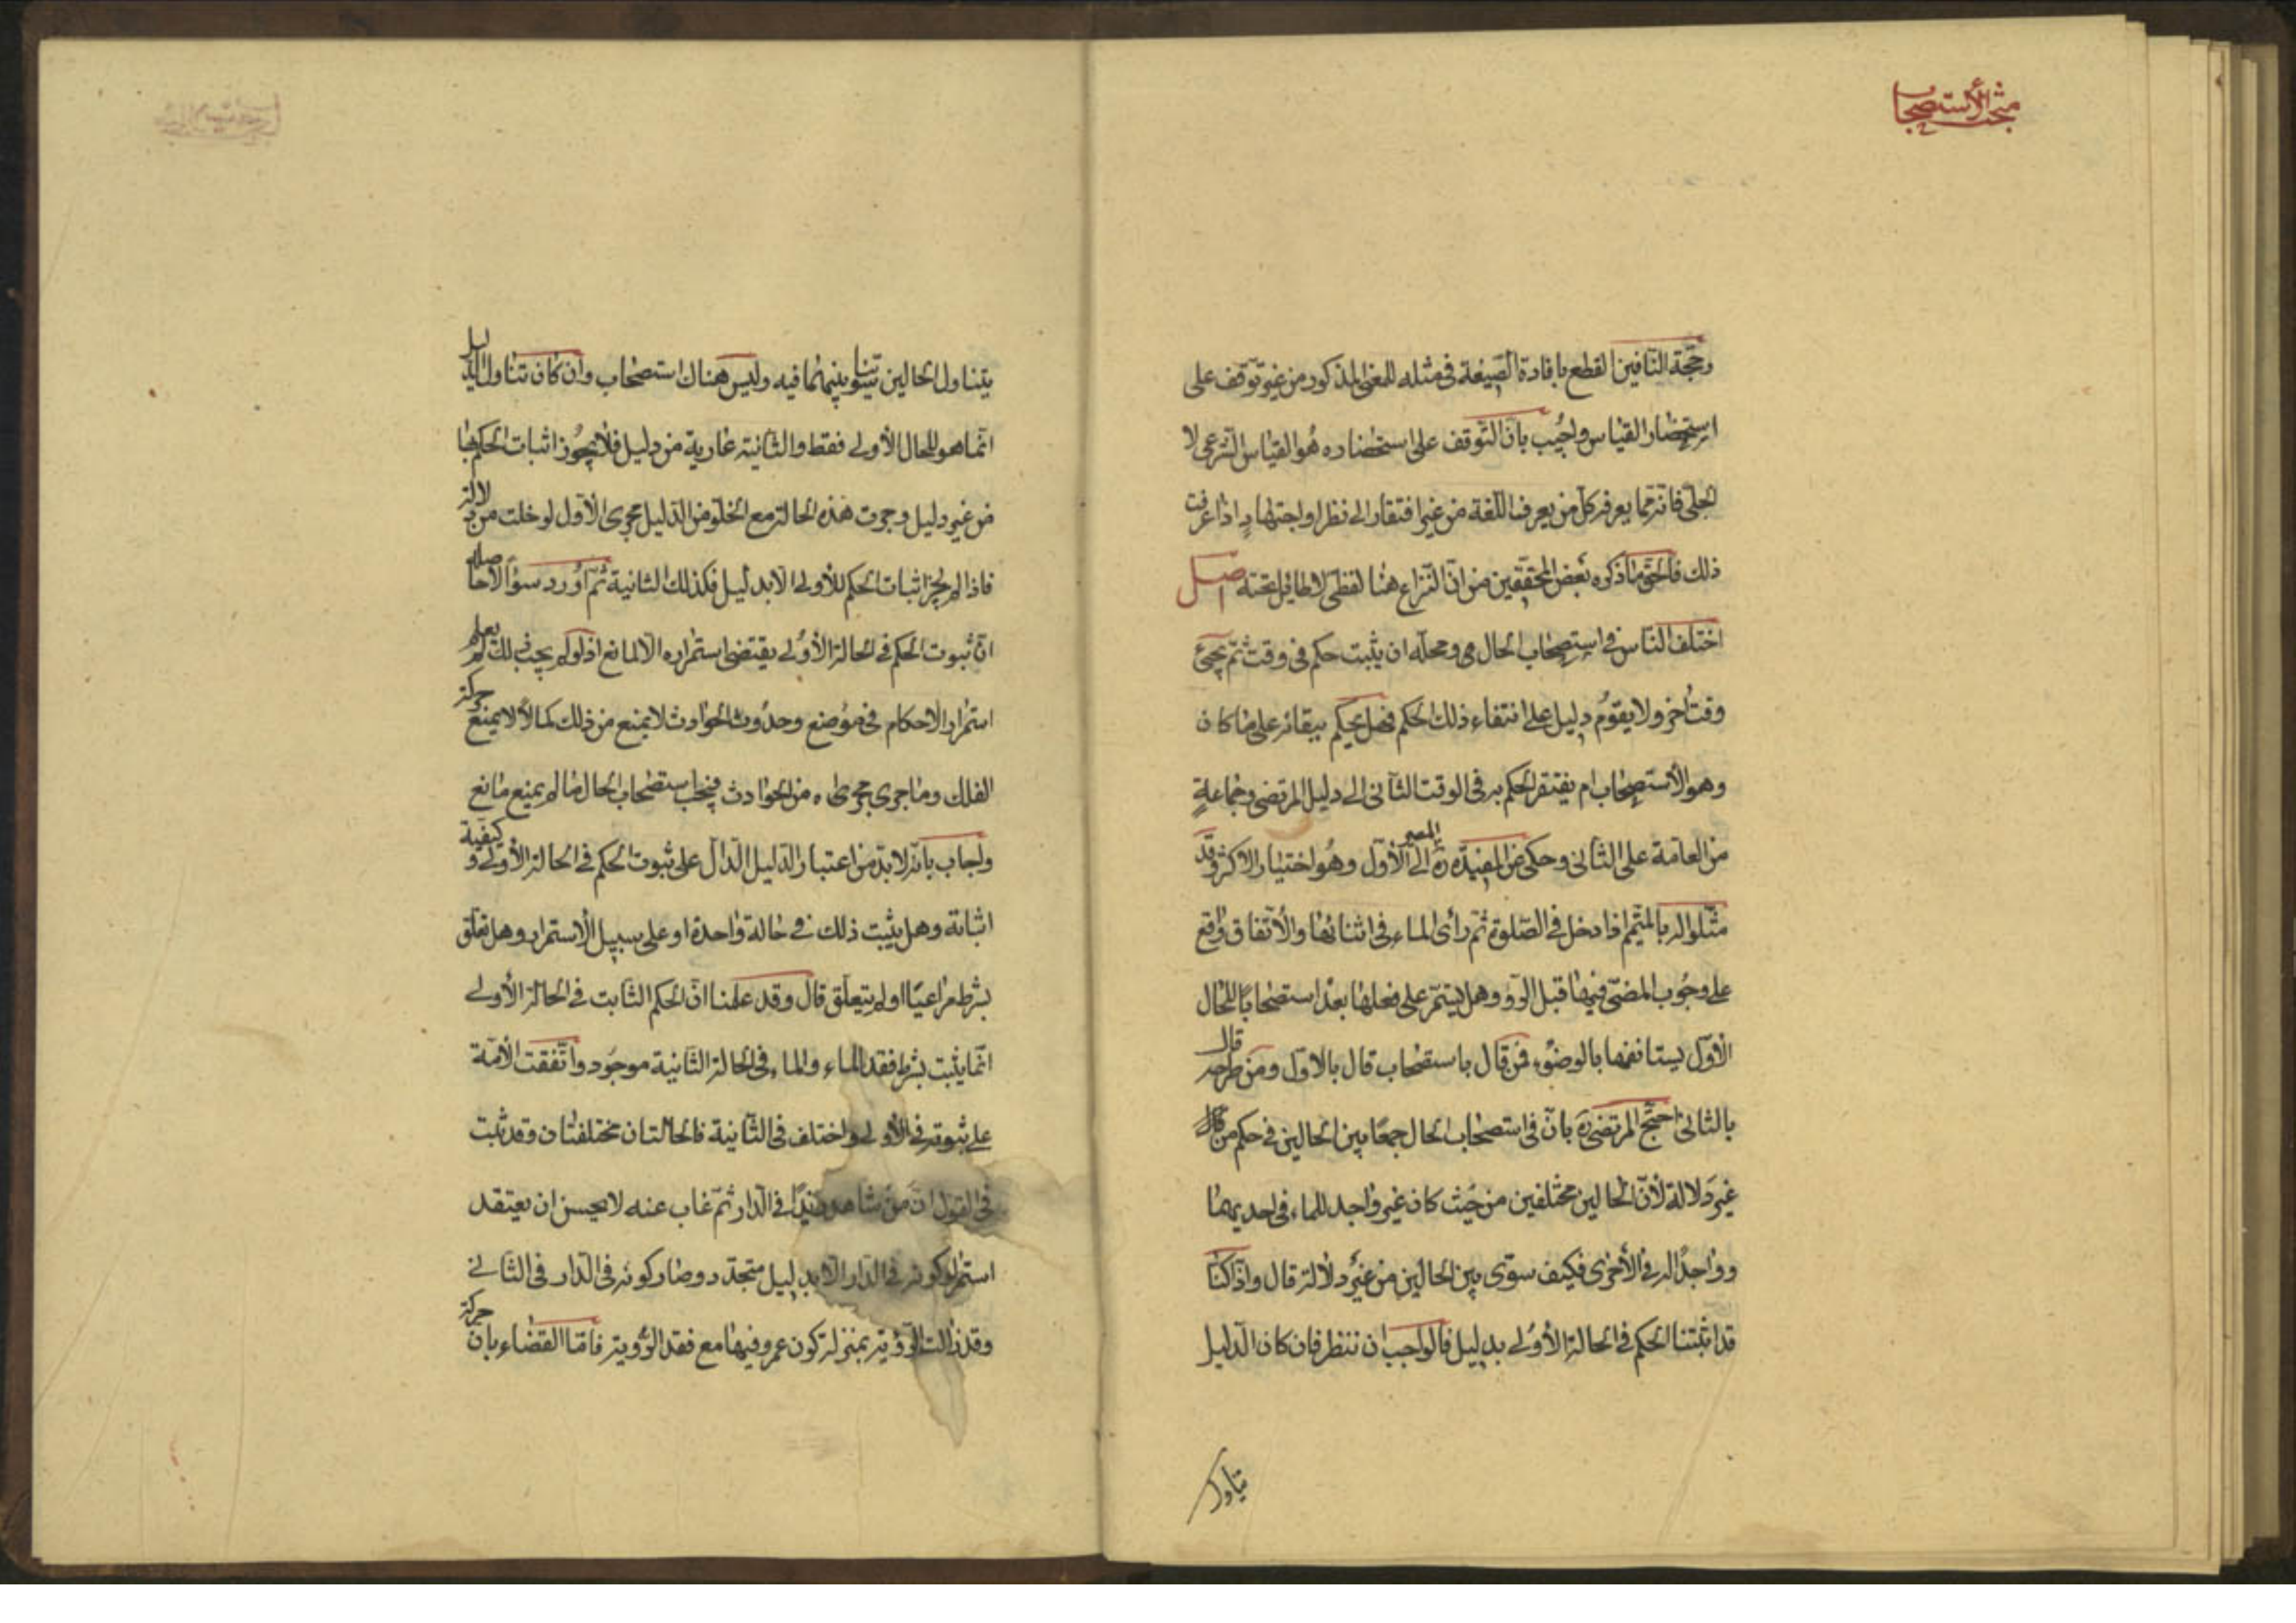 مبحث الاستصحاب
وحجّة النّافين القطع بافادة الصّيغة فى مثله للمعنى المذكور من غير توقّف على
استحضار القياس واجيب بانّ التّوقف على استحضاره هو القياس الشرعى لا
الجلّى فانّه ممّا يعرفه كلّ من يعرف اللّغة من غير افتقار الى نظر او اجتهاد اذا عرفت
ذلك فالحق ما ذكره بعض المحقّقين من انّ النّزاع هنا لفظى لا طائل تحته اصل
اختلف النّاس فى استصحاب الحال هى ومحلّه ان يثبت حكم فى وقت ثمّ يجئ
وقت اخر ولا يقوم دليل على انتفاء ذلك الحكم فهل يحكم ببقائه على ما كان
وهو الاستصحاب ام يفتقر الحكم به فى الوقت الثّانى الى دليل المرتضى وجماعةٍ
من العامّة على الثانى وحكى عن المفيد ره المصير الى الاوّل وهو اختيار الاكثر وقد
مثّلوا له بالمتيّمم اذا دخل فى الصّلوة ثمّ رأى الماء فى اثنائها والاتّفاق واقع
على وجوب المضىّ فيها قبل الرّؤ وهل يستمّر على فعلها بعد استصحابًا للحال
الاوّل يستانفها بالوضوء فمن قال باستصحاب قال بالاوّل ومن طرحه قال
بالثانى احتجّ المرتضى ره بانّ فى استصحاب الحال جمعًا بين الحالين فى حكم من
غير دلالة لأنّ الحالين مختلفين من حيث كان غير واجد للماء فى احديهما
وواجدًا له فى الأخرى فكيف سوّى بين الحالين من غير دلالة قال واذا كنّا
قد اثبتنا الحكم فى الحالة الأولى بدليل فالواجب ان ننظر فان كان الدّليل
يتناول
يتناول الحالين سوّينا بينهما فيه وليس هناك استصحاب وان كان تناول الدّليل
انّما هو للحال الأولى فقط والثّانية عارية من دليل فلا يجوز اثبات الحكم لها
من غير دليل وجرت هذه الحالة مع الخلوّ من الدّليل مجرى الأول لو خلت من دلالة
فاذا لم يجز اثبات الحكم للأولى الّا بدليل فكذلك الثانية ثمّ اورد سؤالًا حاصله
انّ ثبوت الحكم فى الحالة الأولى يقتضى استمراره الّا لمانع اذ لو لم يجب ذلك لم يعلم
استمرار الاحكام فى موضع وحدوث الحوادث لا يمنع من ذلك كما لا يمنع حركة
الفلك وما جرى مجراه من الحوادث فيجب استصحاب الحال ما لم يمنع مانع
واجاب بانّه لا بدّ من اعتبار الدّليل الدّال على ثبوت الحكم فى الحالة الأولى وكيفيّة
اثباته وهل يثبت ذلك فى حالة واحدة او على سبيل الاستمرار وهل تعلّق
بشرط مراعيًا او لم يتعلّق قال وقد علمنا انّ الحكم الثّابت فى الحالة الأولى
انّما يثبت بشرط فقد الماء والماء فى الحالة الثّانية موجود واتّفقت الأمّة
على ثبوته فى الأولى واختلف فى الثّانية فالحالتان مختلفتان وقد ثبت
فى القول انّ من شاهد زيدًا فى الدّار ثمّ غاب عنه لا يحسن ان يعتقد
استمرار كونه فى الدّار الّا بدليل متجدّد وصار كونه فى الدّار فى الثّانى
وقد زالت الرّؤية بمنزلة كون عمرو فيها مع فقد الرّؤية فامّا القضاء بانّ حركة